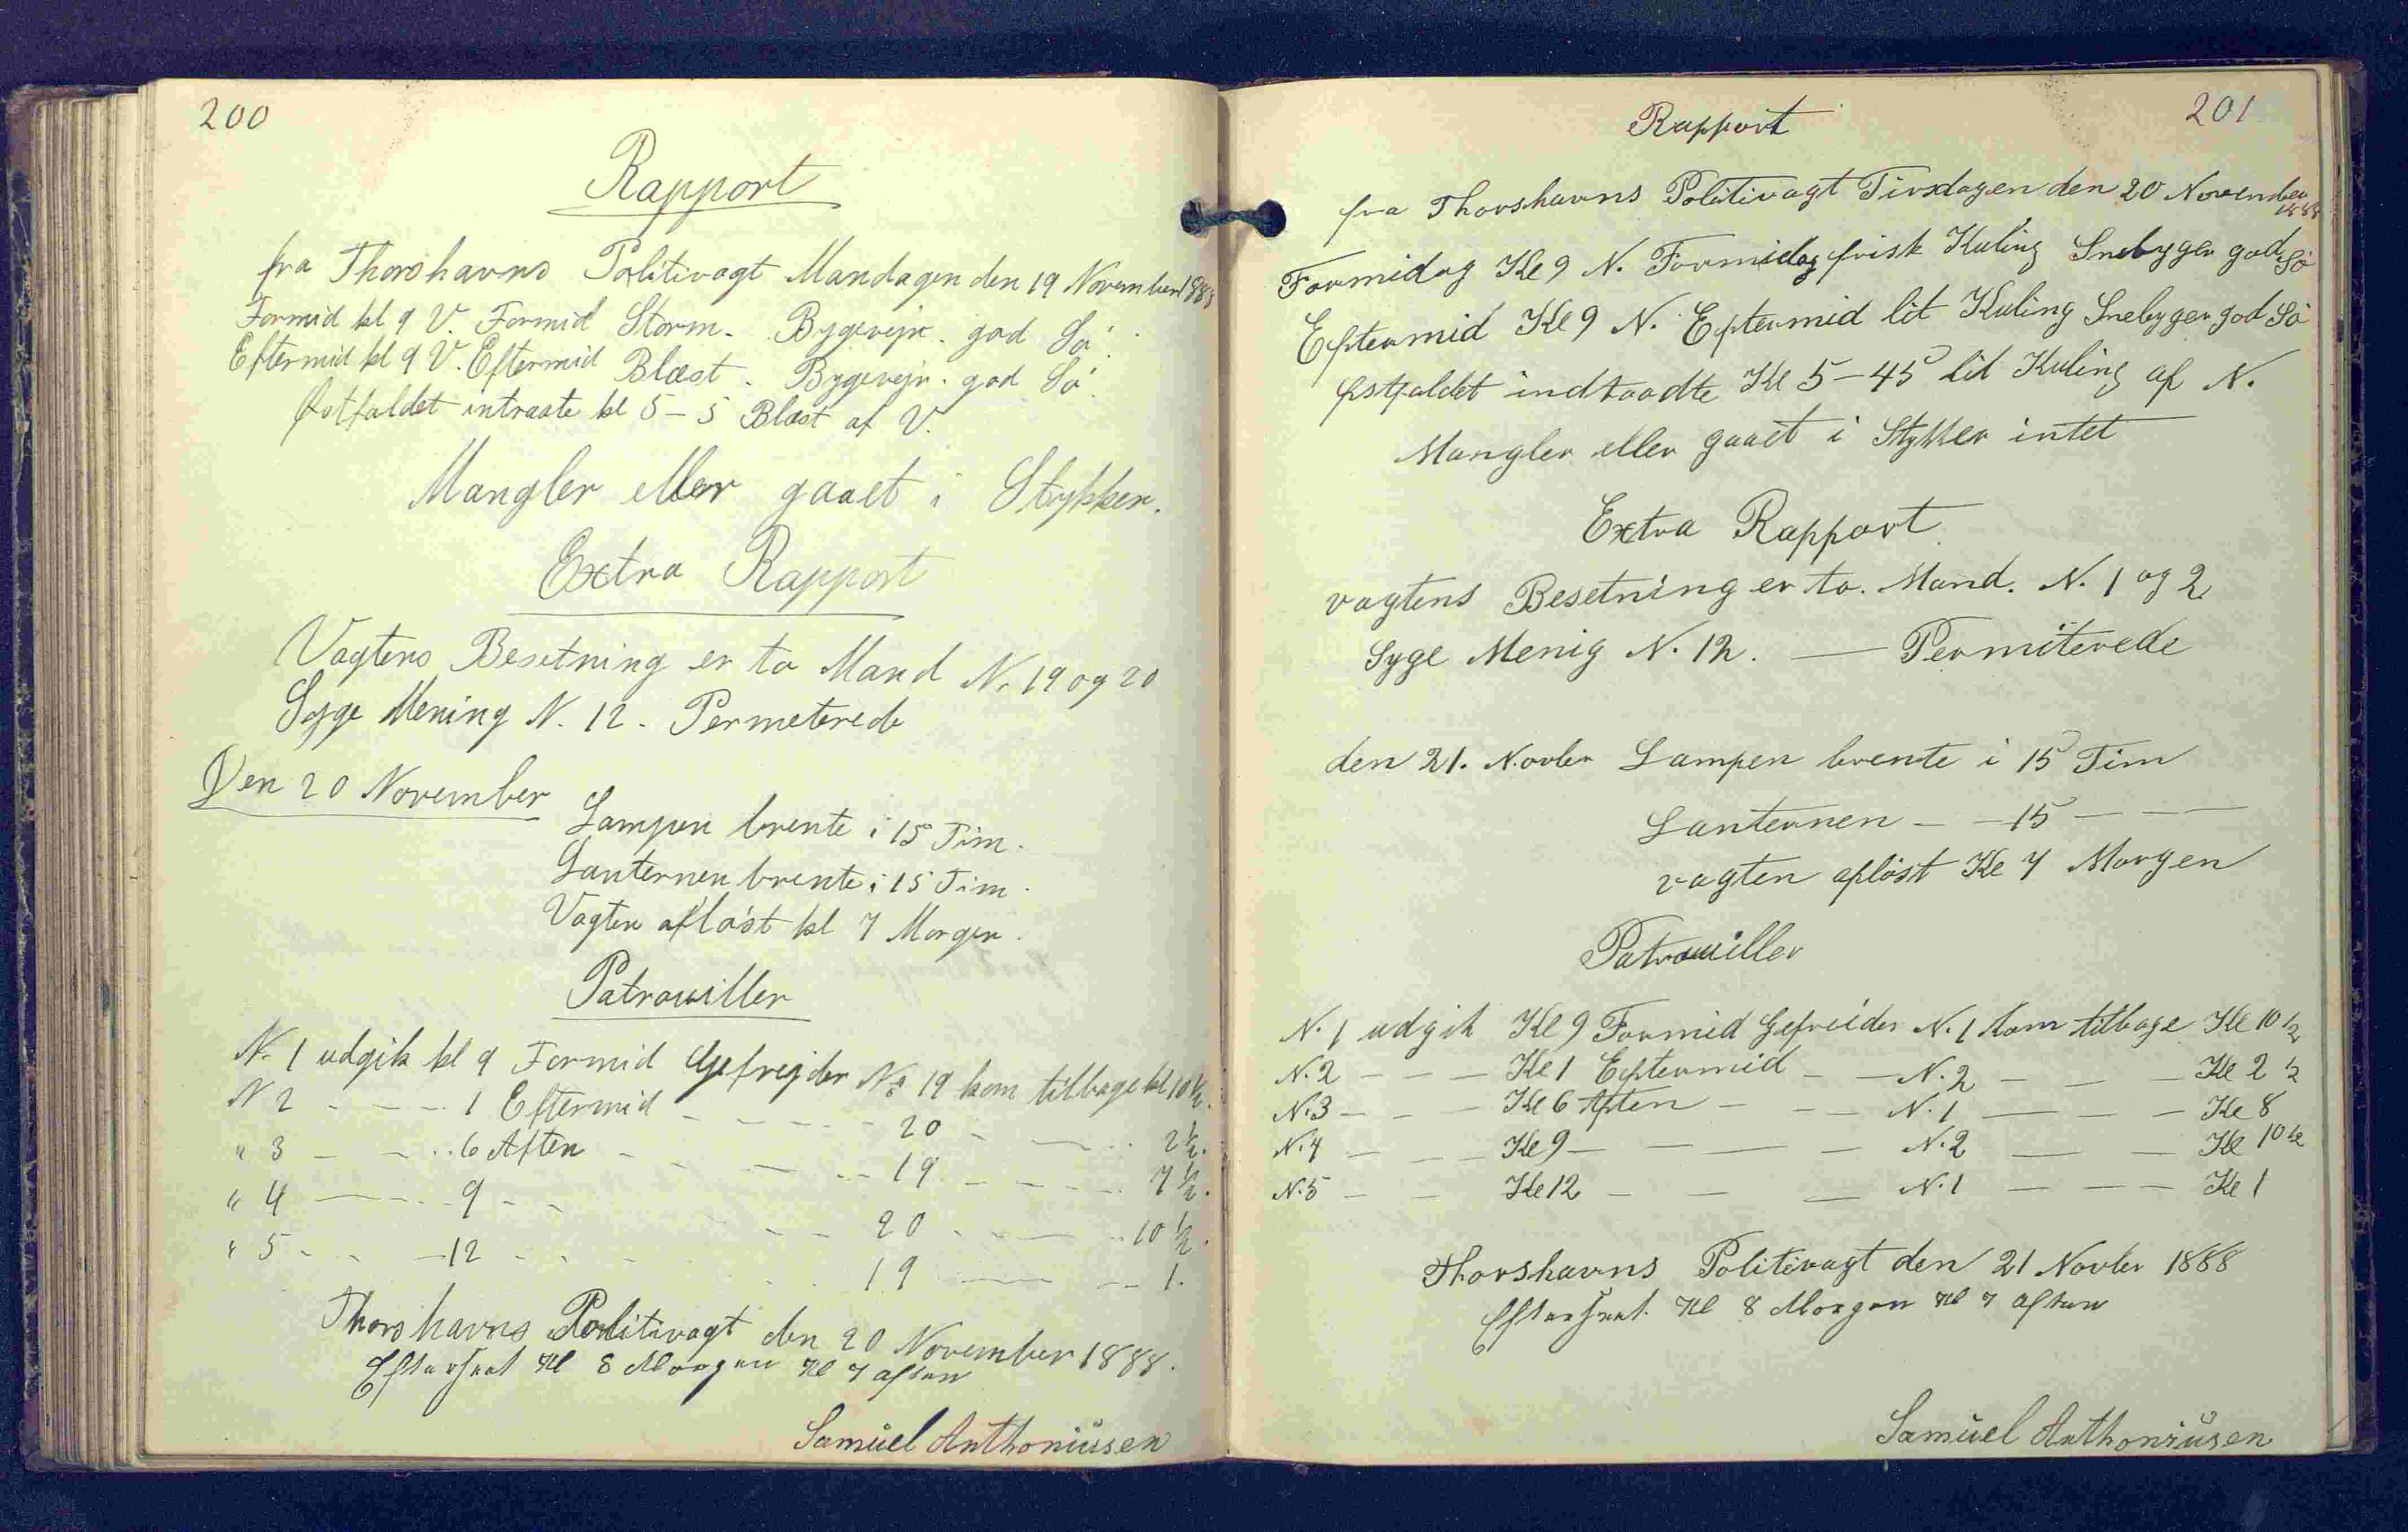 200
Rapport
fra Thorshavns Politivagt Mandagen den 19 November 1888
Formid kl 9 V. Formid Storm - Bygevejr - god Sø
Eftermid kl 9 V. Eftermid Blæst - Bygevejr - god Sø
Østfaldet intraate kl 5-5 Blæst af V.
Mangler eller gaaet i Stykker.
Extra Rapport
Vagtens Besetning er to Mand N. 19 og 20
Syge Mening N. 12 - Permeterede
Den 20 November
Lampen brente i 15 Tim -
Lanternen brente i 15 Tim -
Vagten afløst kl 7 Morgen -
Patrouiller
N. 1 udgik kl 9 Formid Gefrejder No 19 kom tilbage kl 10 1/2.
N 2 - - - - 1 Eftermid - - - - - 20 - - - - 2 1/2.
" 3 - - - 6 Aften - - - - - 19 - - - - 7 1/2.
" 4 - - - 9 - - - - - 20 - - - - 10 1/2.
" 5 - - - 12 - - - - - 19 - - - 1.
Thorshavns Politivagt den 20 November 1888.
Efterseet Kl 8 Morgen Kl 7 aften
Samüel Anthoniüsen
201
Rapport
fra Thorshavns Politivagt Tirsdagen den 20 November 1888
Formidag Kl 9 N. Formidag frisk Kuling Snebyger god Sø
Eftermid Kl 9 N. Eftermid lit Kuling Snebyger god Sø
Østfaldet indtraadte Kl 5-45 lit Kuling af N.
Mangler eller gaaet i Stykker intet
Extra Rapport
vagtens Besetning er to. Mand. N. 1 og 2
Syge Menig N. 12. — Permiterede
den 21. Novbr Lampen brente i 15 Tim
Lanternen - - 15 - -
vagten afløst Kl 7 Morgen
Patrouiller
N. 1 udgik Kl 9 Formid Gefreider N. 1 kom tilbage Kl 10 1/2
N. 2 - - - Kl 1 Eftermid - - N. 2 - - - Kl 2 1/2
N. 3 - - - Kl 6 Aften - - - N. 1 - - - Kl 8
N. 4 - - - Kl 9 - - - - N. 2 - - Kl 10 1/2
N. 5 - - Kl 12 - - - N. 1 - - - Kl 1
Thorshavns Politivagt den 21 Novbr 1888
Efterseet Kl 8 Morgen Kl 7 aften
Samüel Anthoniüsen